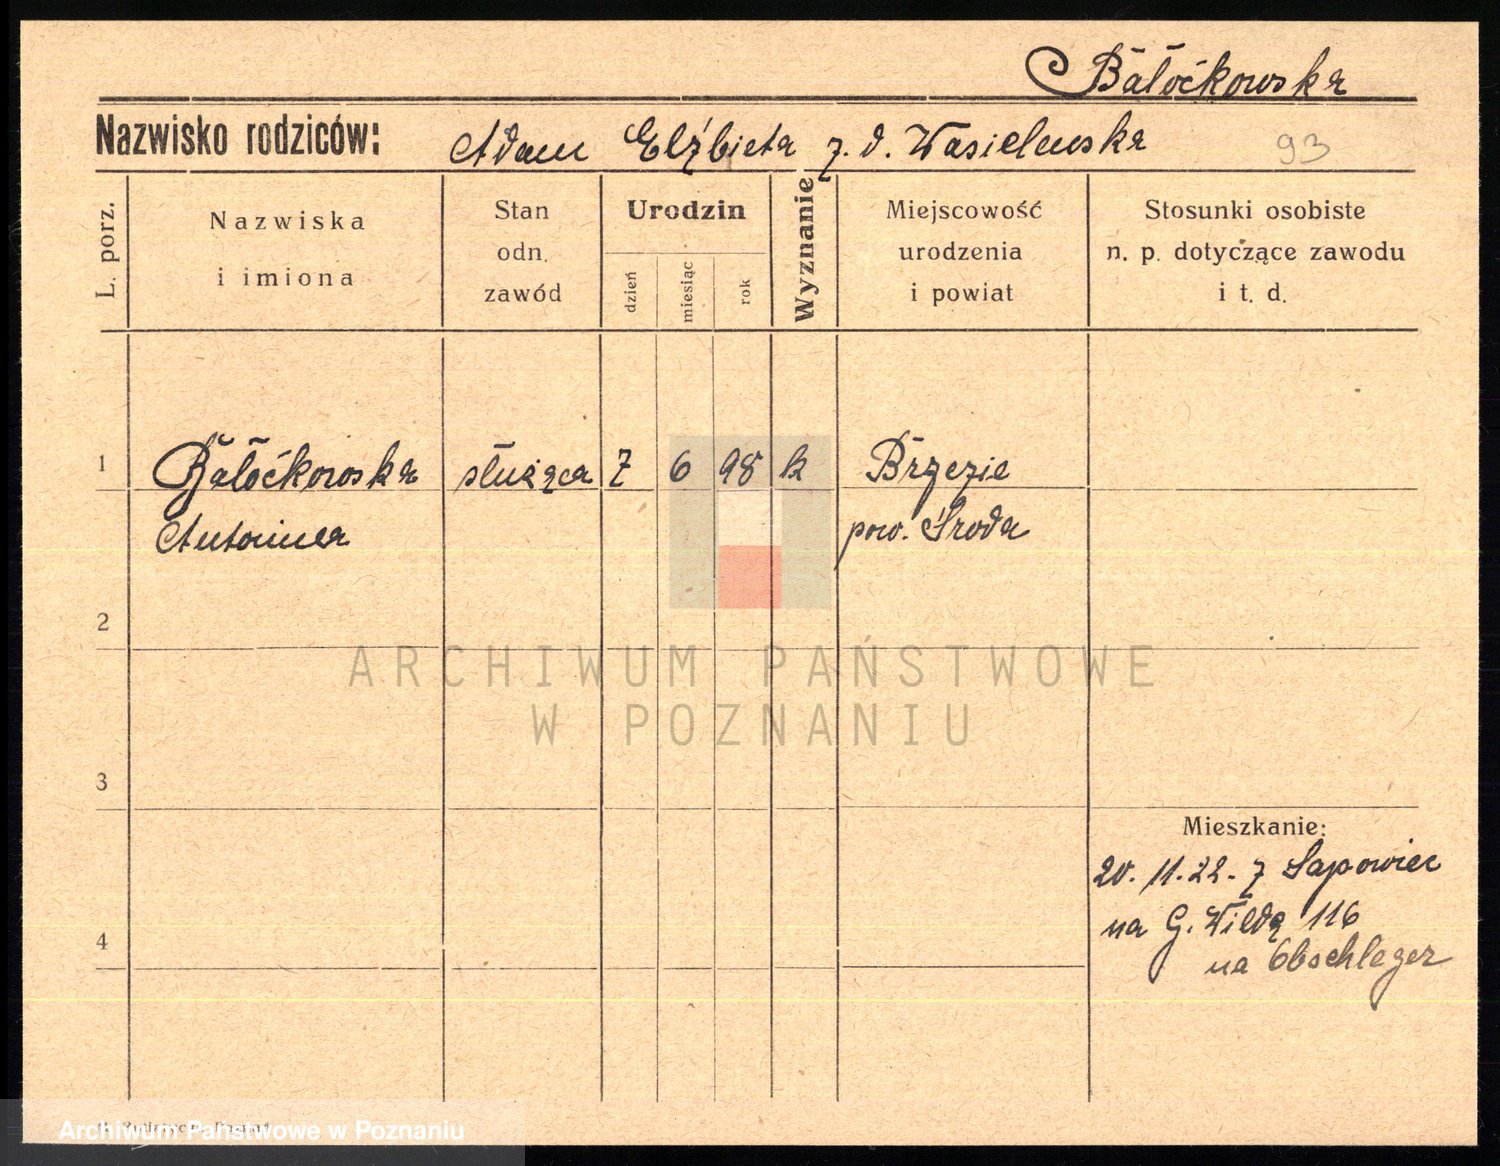 Bałoćkowska
Nazwisko rodziców: Adam Elżbieta z. d. Wasielewska 93
L. porz.
Nazwiska
i imiona
Stan
odn.
zawód
Urodzin
dzień
miesiąc
rok
Wyznanie
Miejscowość
urodzenia
i powiat
Stosunki osobiste
n. p. dotyczące zawodu
i t. d.
1 Bałoćkowska służąca 7 6 98 k Brzezie
Antonina pow. Środa
2
ARCHIWUM PAŃSTWOWE
W POZNANIU
3
Mieszkanie:
20. 11. 22. z Sapowiec
na G. Wildą 116
4
na Obschleger
Archiwum Państwowe w Poznaniu